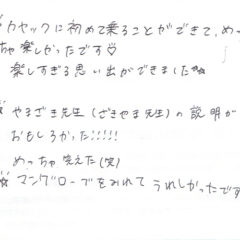 カヤックに初めて乗ることができて、めっ
ちゃ楽しかったです♡
楽しすぎる思い出ができました☆
☆やまざき先生(ざきやま先生)の説明が
おもしろかった!!!!!
めっちゃ笑えた(笑)
☆マングローブをみれてうれしかったです